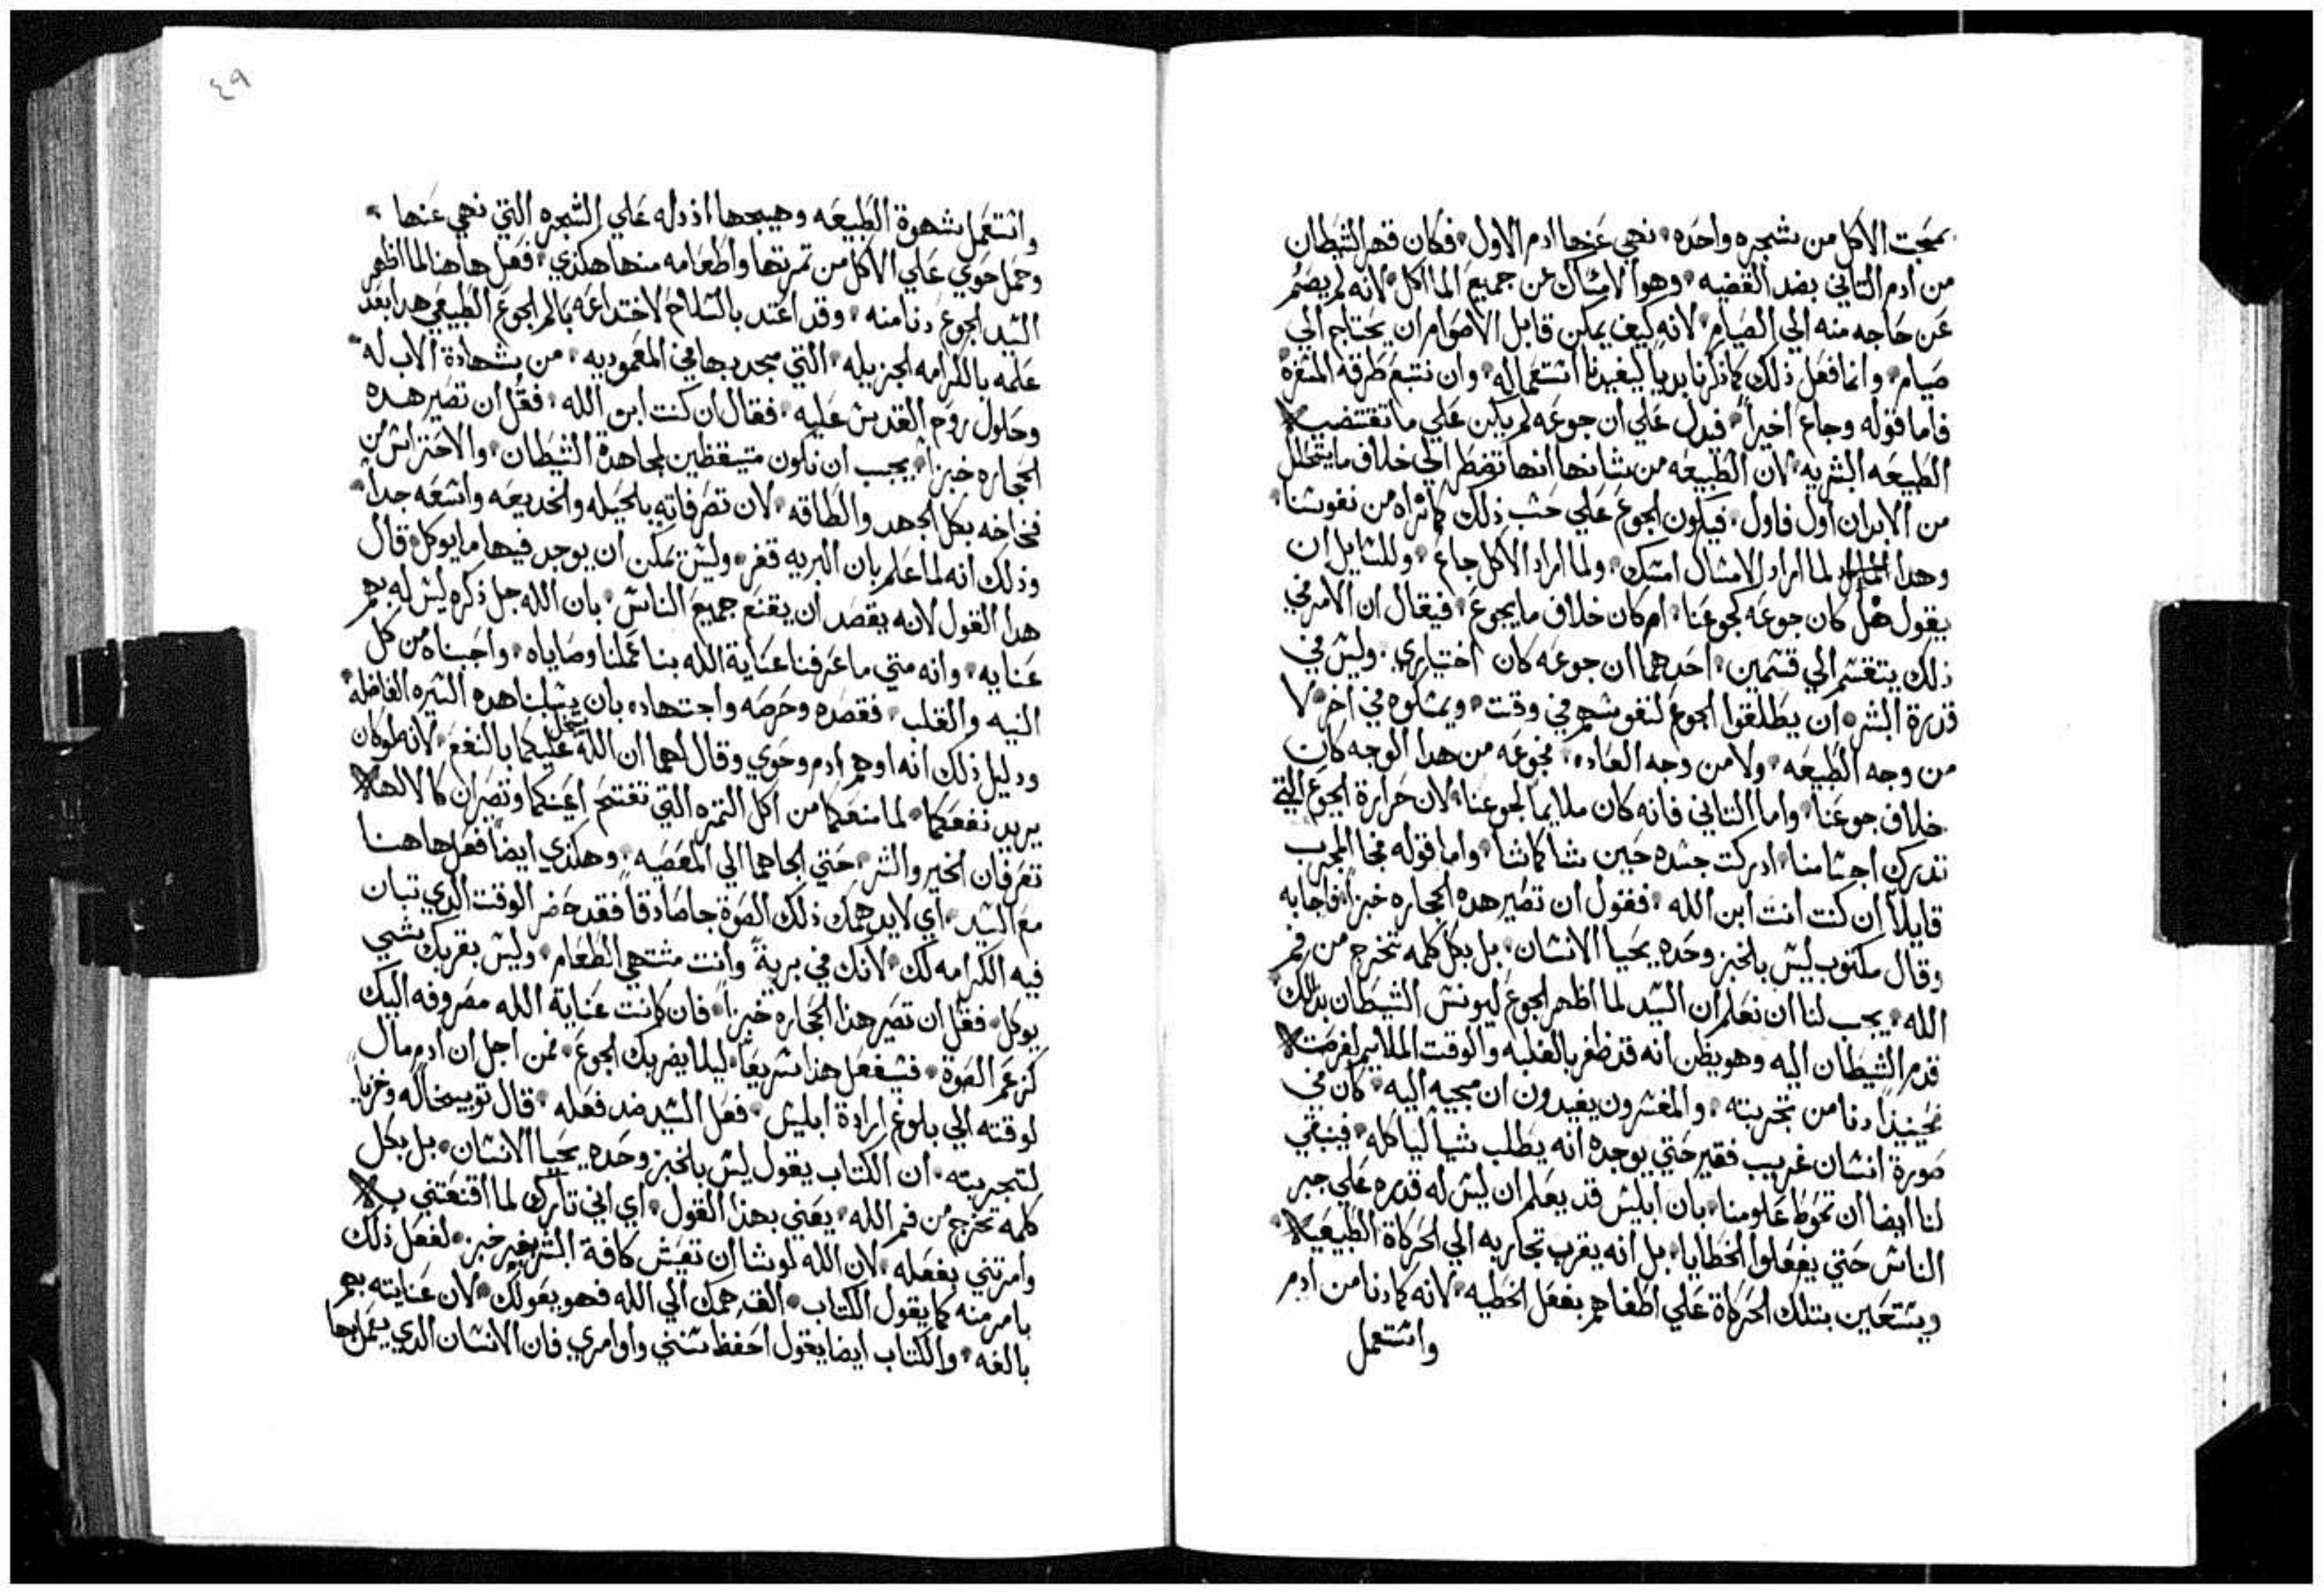 بمحبت الاكل من شجره واحده، نهي عنها ادم الاول، فكان قهر الشيطان
من ادم التاني بضد القضيه، وهو الامساك عن جميع الماأكل، لانه لم يصم
عن حاجه منه الي الصيام، لانه كيف يمكن قابل الاصوام ان يحتاج الي
صيام، وانما فعل ذلك كما ذكرنا بدياً ليفيدنا استعماله، وان نتبع طرقه
فاما قوله وجاع اخيراً، فيدل علي ان جوعه لم يكن علي ما تقتضيه
الطبيعه البشريه، لان الطبيعه من شانها انها تضطر الي خلاف ما يتحلل
من الابدان اول فاول، فيكون الجوع علي حسب ذلك كما نراه من نفوسنا،
وهدا لما اراد الامساك امسك، ولما اراد الاكل جاع، وللسايل ان
يقول هل كان جوعه كجوعنا، ام كان خلاف ما يجوع، فيقال ان الامر في
ذلك يتقسم الي قسمين، احدهما ان جوعه كان اختياري، وليس في
قدرة البشر ان يطلقوا الجوع لنفوسهم في وقت، ويمسكوه في اخر، لا
من وجه الطبيعه، ولا من وجه العاده، فجوعه من هدا الوجه كان
خلاف جوعنا، واما التاني فانه كان ملايماً لجوعنا، لان حرارة الجوع التي
تدرك اجسامنا، ادركت جسده حين شا كما شا، واما قوله فجا المجرب
قايلاً ان كنت انت ابن الله، فقول ان تصير هده الحجاره خبزاً، فاجابه
وقال مكتوب ليس بالخبز وحده يحيا الانسان، بل بكل كلمه تخرج من فم
الله، يجب لنا ان نعلم ان السيد لما اظهر الجوع ليونس الشيطان بدلك
قدم الشيطان اليه وهو يظن انه قد ظفر بالغلبه والوقت الملايم لغرضه
فحينيذاً دنا من تجربته، والمفسرون يفيدون ان مجيه اليه، كان في
صورة انسان غريب فقير حتي يوجده انه يطلب شياً لياكله، فينبغي
لنا ايضا ان نحوط علومنا، بان ابليس قد يعلم ان ليس له قدره علي جبر
الناس حتي يفعلوا الخطايا، بل انه يقرب تجاربه الي الحركاة الطبيعيه
ويستعين بتلك الحركاة علي اطغاهم بفعل الخطيه، لانه كما دنا من ادم
واستعمل
٤٩
واستعمل شهوة الطبيعه وهيجها اذ دله علي الشجره التي نهي عنها،
وحمل حوي علي الاكل من تمرتها واطعامه منها هكذي، فعل هاهنا لما اظهر
السيد الجوع دنا منه، وقد اعتد بالسلاح لاختداعه بالم الجوع الطبيعي هدا بعد
علمه بالكرامه الجزيله، التي مجد بها في المعموديه، من شهادة الاب له،
وحلول روح القدس عليه، فقال ان كنت ابن الله، فقل ان تصير هده
الحجاره خبزاً، يجب ان نكون متيقظين لمجاهدة الشيطان، والاحتراس من
فخاخه بكل الجهد والطاقه، لان تصرفاته بالحيله والخديعه واسعه جداً،
وذلك انه لما علم بان البريه قفر، وليس تمكن ان يوجد فيها ما يوكل، قال
هدا القول لانه يقصد ان يقنع جميع الناس، بان الله جل ذكره ليس له بهم
عنايه، وانه متي ما عرفنا عناية الله بنا عملنا وصاياه، واحبناه من كل
النيه والقلب، فقصده وحرصه واجتهاده بان يسلبنا هده السيره الفاضله،
ودليل ذلك انه اوهم ادم وحوي وقال لهما ان الله يبخل عليكما بالنفع، لانه لو كان
يريد نفعكما، لما منعكما من اكل التمره التي تفتح اعينكما وتصيران كالالهه
تعرفان الخير والشر، حتي الجاهما الي المعصيه، وهكذي ايضاً فعل هاهنا
مع السيد، اي لا يدهمك ذلك الصوة جا صادقاً فقد حضر الوقت الدي تبان
فيه الكرامه لك، لانك في برية وانت مشتهي الطعام، وليس بقربك شي
يوكل، فقل ان تصر هذا الحجاره خبزاً، فان كانت عناية الله مصروفه اليك
كزعم الصوة، فسيفعل هذا سريعاً، ليلا يضر بك الجوع، فمن اجل ان ادم مال
لوقته الي بلوغ ارادة ابليس، فعل السيد ضد فعله، قال توبيخاً له وخزياً
لتجربته، ان الكتاب يقول ليس بالخبز وحده يحيا الانسان، بل بكل
كلمه تخرج من فم الله، يعني بهذا القول، اي اني تارك لما اقنعتني به
وامرتني بفعله، لان الله لو شا ان تعيش كافة البشر بغير خبز، لفعل ذلك
بامر منه كما يقول الكتاب، الق همك الي الله فهو يعولك، لان عنايته بهم
بالغه، والكتاب ايضا يقول احفظ سنني واوامري فان الانسان الدي يعمل بها